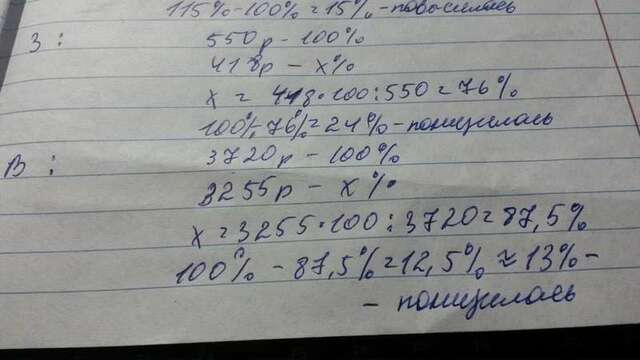 115%-100%=15%-повысилась
З: 550р - 100%
418р - х%
х = 418·100:550=76%
100%-76%=24%-понизилась
В: 3720р - 100%
3255р - х%
х=3255·100:3720=87,5%
100% - 87,5%=12,5%≈13%-
- понизилась